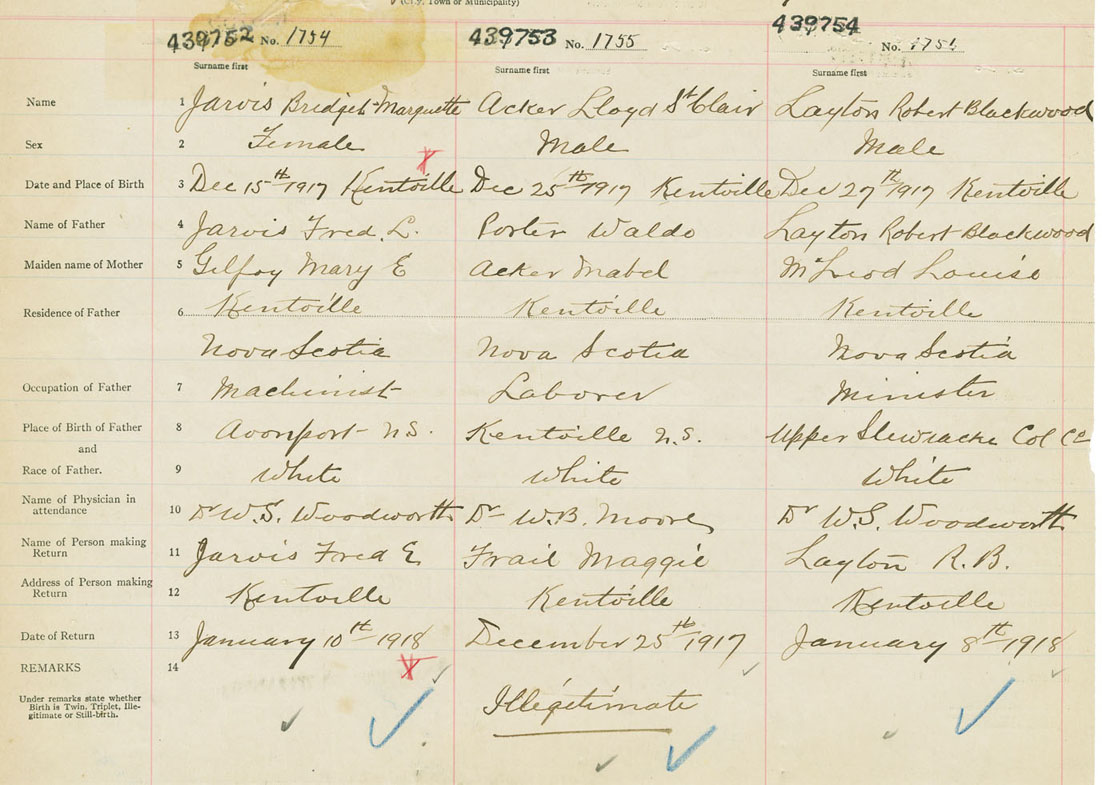 (City, Town or Municipality)
439752 No. 1754 439753 No. 1755 439754 No. 175
Surname first Surname first Surname first
Name 1 Jarvis Bridget Marquette Acker Lloyd St Clair Layton Robert Blackwood
Sex 2 Female Male Male
Date and Place of Birth 3 Dec 15th 1917 Kentville Dec 25th 1917 Kentville Dec 27th 1917 Kentville
Name of Father 4 Jarvis Fred. L. Porter Waldo Layton Robert Blackwood
Maiden name of Mother 5 Gilfoy Mary E Acker Mabel McLeod Louise
Residence of Father 6 Kentville Kentville Kentville
Nova Scotia Nova Scotia Nova Scotia
Occupation of Father 7 Machinist Laborer Minister
Place of Birth of Father 8 Avonport N.S. Kentville N.S. Upper Stewiacke Col Co
and
Race of Father. 9 White White White
Name of Physician in
attendance 10 Dr W.S. Woodworth Dr W.B. Moore Dr W.S. Woodworth
Name of Person making
Return 11 Jarvis Fred E Frail Maggie Layton R.B.
Address of Person making
Return 12 Kentville Kentville Kentville
Date of Return 13 January 10th 1918 December 25th 1917 January 8th 1918
REMARKS 14
Under remarks state whether
Birth is Twin, Triplet, Ille-
gitimate or Still-birth.
Illegitimate